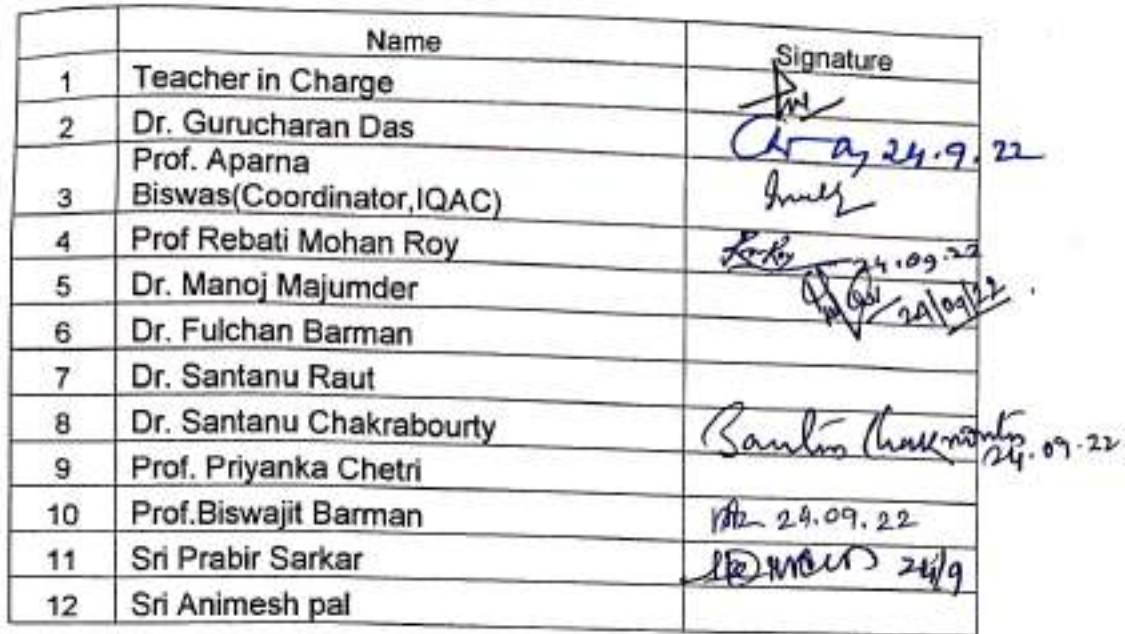 Name Signature
1 Teacher in Charge
2 Dr. Gurucharan Das 24.9.22
Prof. Aparna
3 Biswas(Coordinator,IQAC)
4 Prof Rebati Mohan Roy 24.09.22
5 Dr. Manoj Majumder 24/09/22
6 Dr. Fulchan Barman
7 Dr. Santanu Raut
8 Dr. Santanu Chakrabourty 24.09.22
9 Prof. Priyanka Chetri
10 Prof.Biswajit Barman 24.09.22
11 Sri Prabir Sarkar 24/9
12 Sri Animesh pal